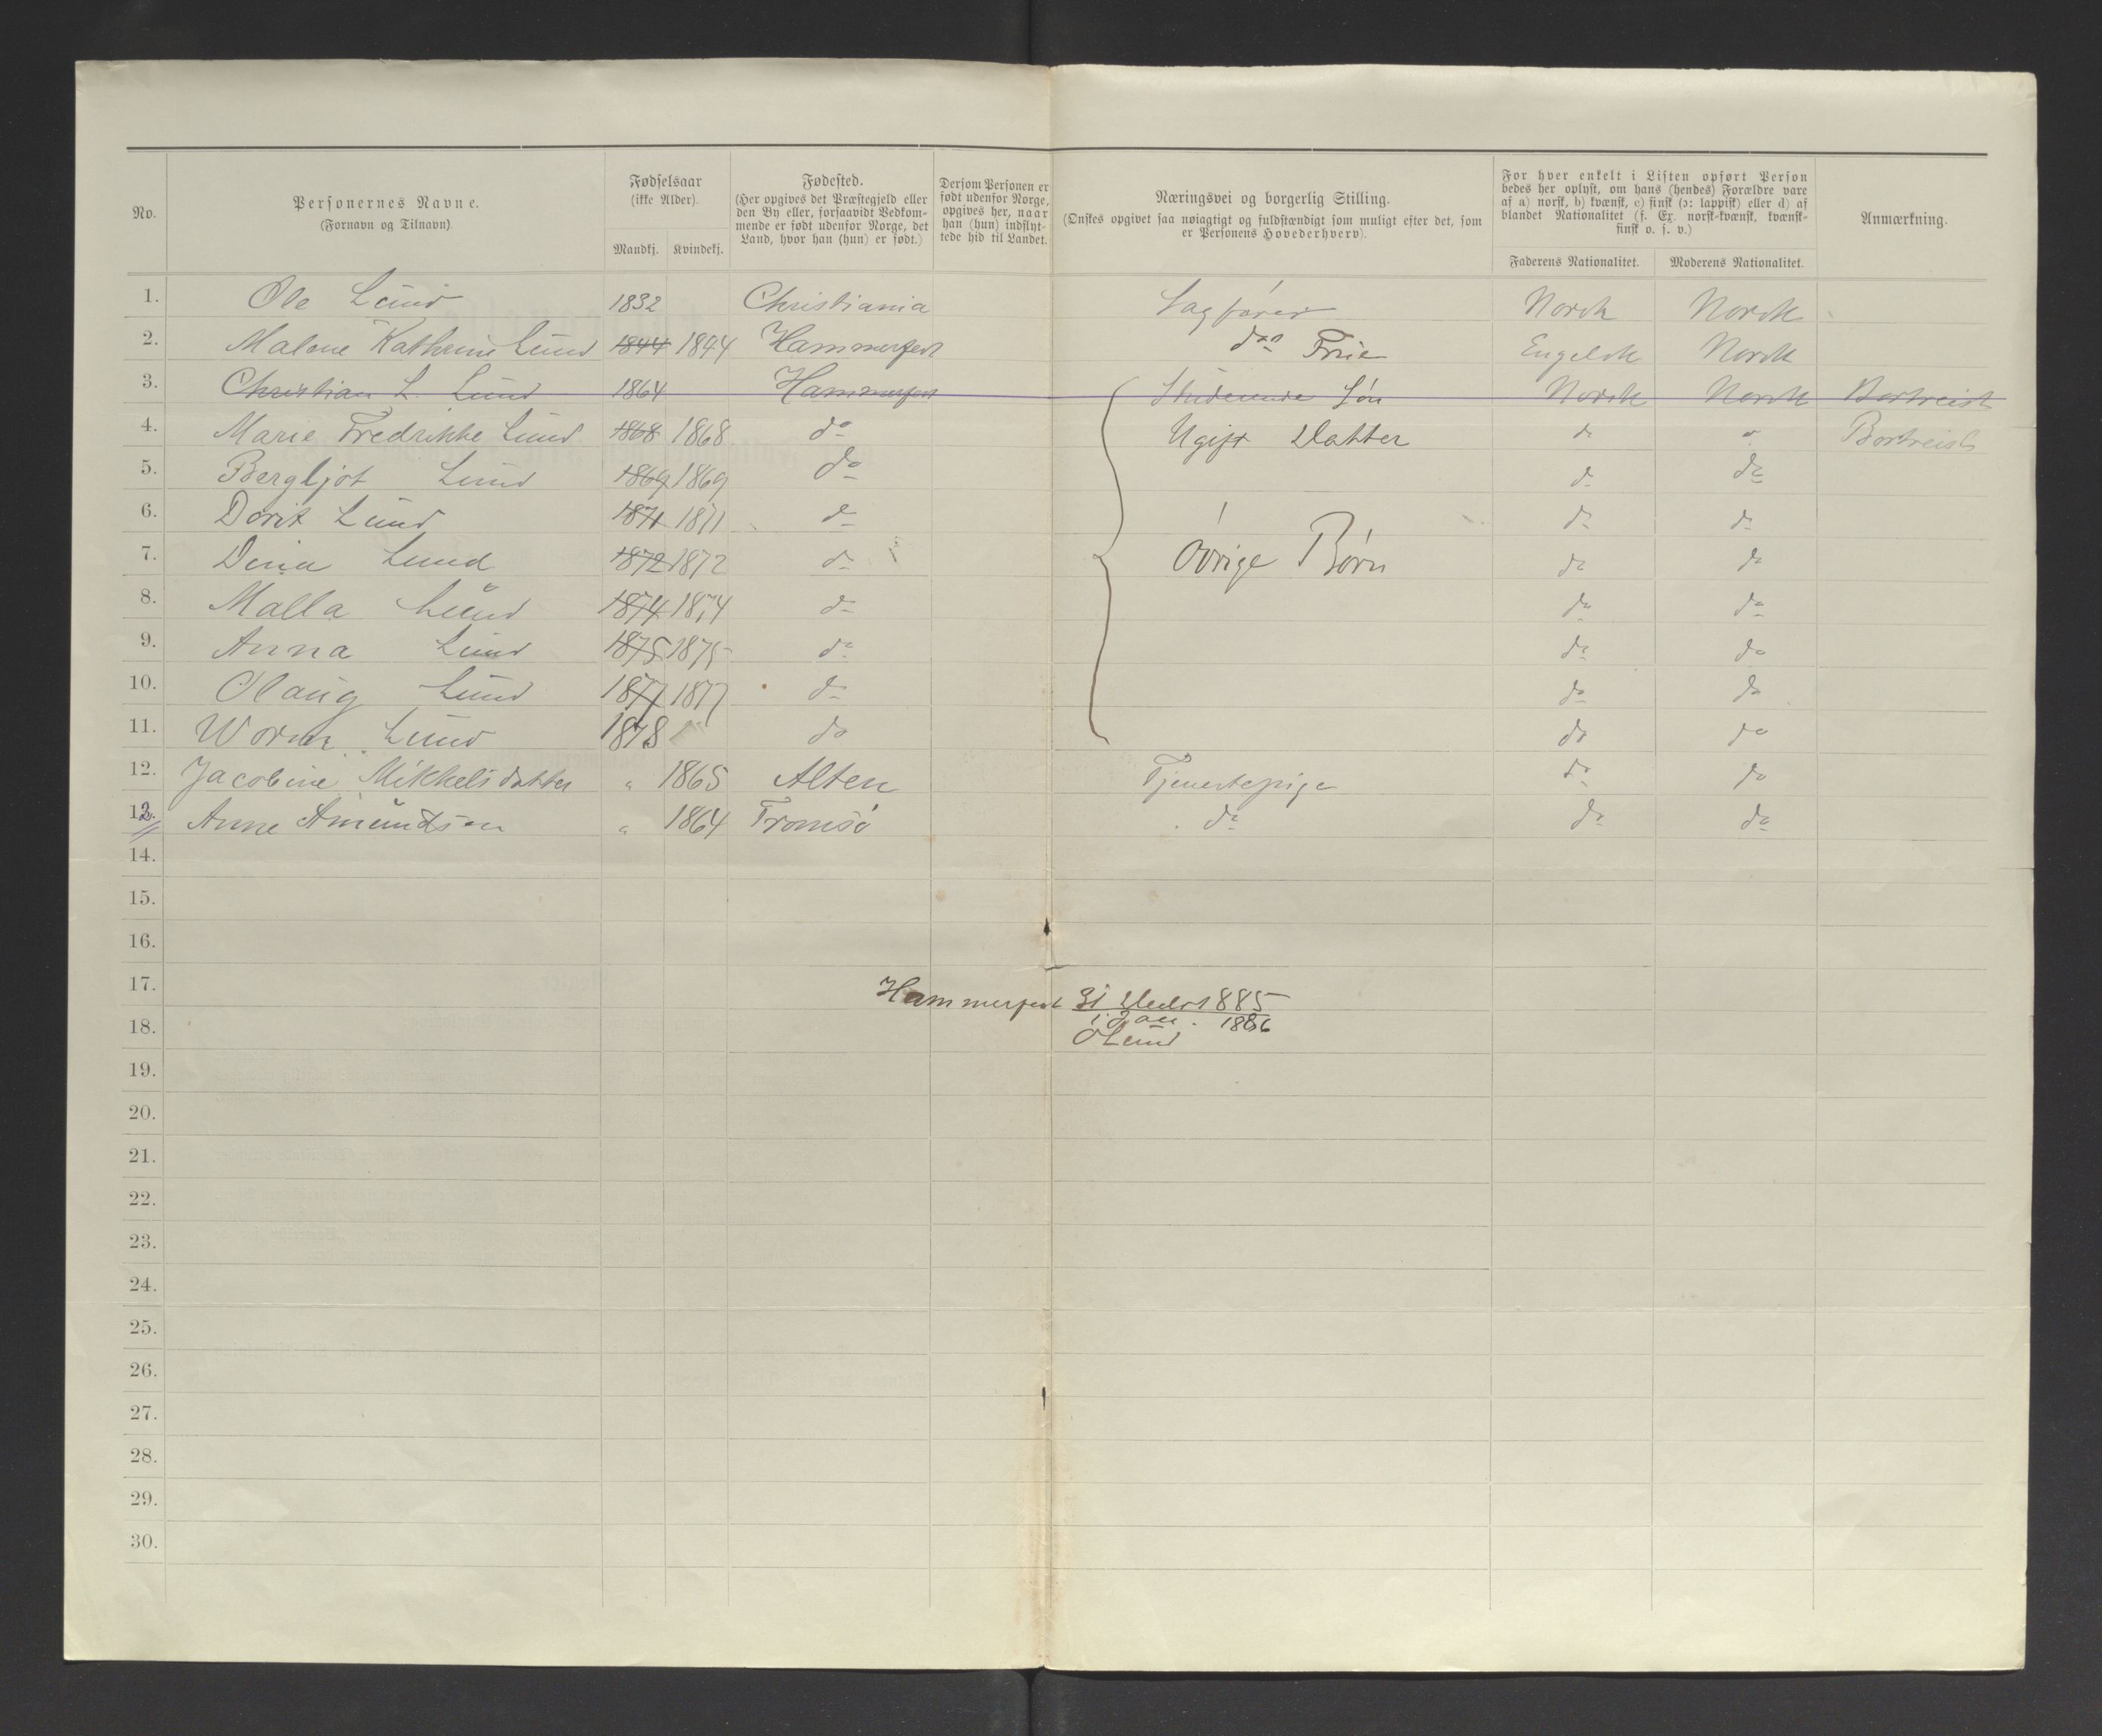 No.
Personernes Navne.
(Fornavn og Tilnavn).
Fødselsaar
(ikke Alder).
Mandkj. Kvindekj.
Fødested.
(Her opgives det Præstegjeld eller
den By eller, forsaavidt Vedkom-
mende er født udenfor Norge, det
Land, hvor han (hun) er født.)
Dersom Personen er
født udenfor Norge,
opgives her, naar
han (hun) indflyt-
tede hid til Landet.
Næringsvei og borgerlig Stilling.
(Ønskes opgivet saa nøiagtigt og fuldstændigt som muligt efter det, som
er Personens Hovederhverv).
For hver enkelt i Listen opført Person
bedes her oplyst, om hans (hendes) Forældre vare
af a) norsk, b) kvænsk, c) finsk (ɔ: lappisk) eller d) af
blandet Nationalitet (f. Ex. norsk-kvænsk, kvænsk-
finsk o. s. v.)
Faderens Nationalitet. Moderens Nationalitet.
Anmærkning.
1. Ole Lund 1832 Christiania Sagfører Norsk Norsk
2. Malene Kathrine Lund 1844 1844 Hammerfest do Frue Engelsk Norsk
3. Christian L. Lund 1864 Hammerfest Studerende Søn Norsk Norsk Bortreist
4. Marie Fredrikke Lund 1868 1868 do Ugift Datter do do Bortreist
5. Bergljot Lund 1869 1869 do do do
6. Dorit Lund 1871 1871 do do do
7. Dina Lund 1872 1872 do Øvrige Børn do do
8. Malla Lund 1874 1874 do do do
9. Anna Lund 1875 1875 do do do
10. Olaug Lund 1877 1877 do do do
11. Worm Lund 1878 do do do
12. Jacobine Mikkelsdatter " 1865 Alten Tjenestepige do do
13. Anne Amundsen " 1864 Tromsø do do do
14.
15.
16.
17.
Hammerfest 31 Decbr 1885
1 Jan. 1886
18.
O Lund
19.
20.
21.
22.
23.
24.
25.
26.
27.
28.
29.
30.